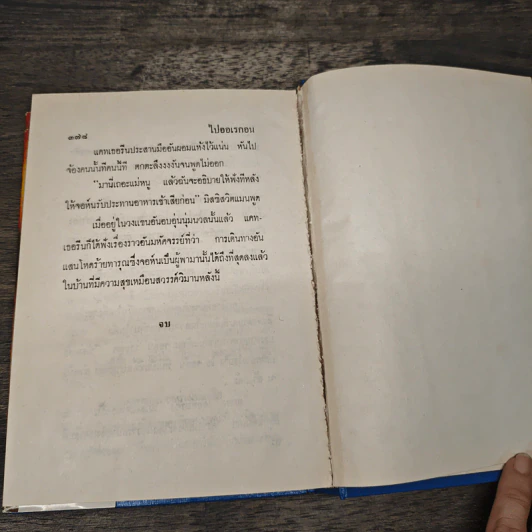 ๓๗๘ ไปออเรกอน
แคทเธอรีนประสานมืออันผอมแห้งไว้แน่น หันไป
จ้องคนนั้นทีคนนี้ที ตกตะลึงงงงันจนพูดไม่ออก
"มานี่เถอะแม่หนู แล้วฉันจะอธิบายให้ฟังทีหลัง
ให้จอห์นรับประทานอาหารเช้าเสียก่อน" มิสซิสวิตแมนพูด
เมื่ออยู่ในวงแขนอันอบอุ่นนุ่มนวลนั้นแล้ว แคท-
เธอรีนก็ได้ฟังเรื่องราวอันมหัศจรรย์ที่ว่า การเดินทางอัน
แสนโหดร้ายทารุณซึ่งจอห์นเป็นผู้พามานั้นได้ถึงที่สุดลงแล้ว
ในบ้านที่มีความสุขเหมือนสวรรค์วิมานหลังนี้
จบ